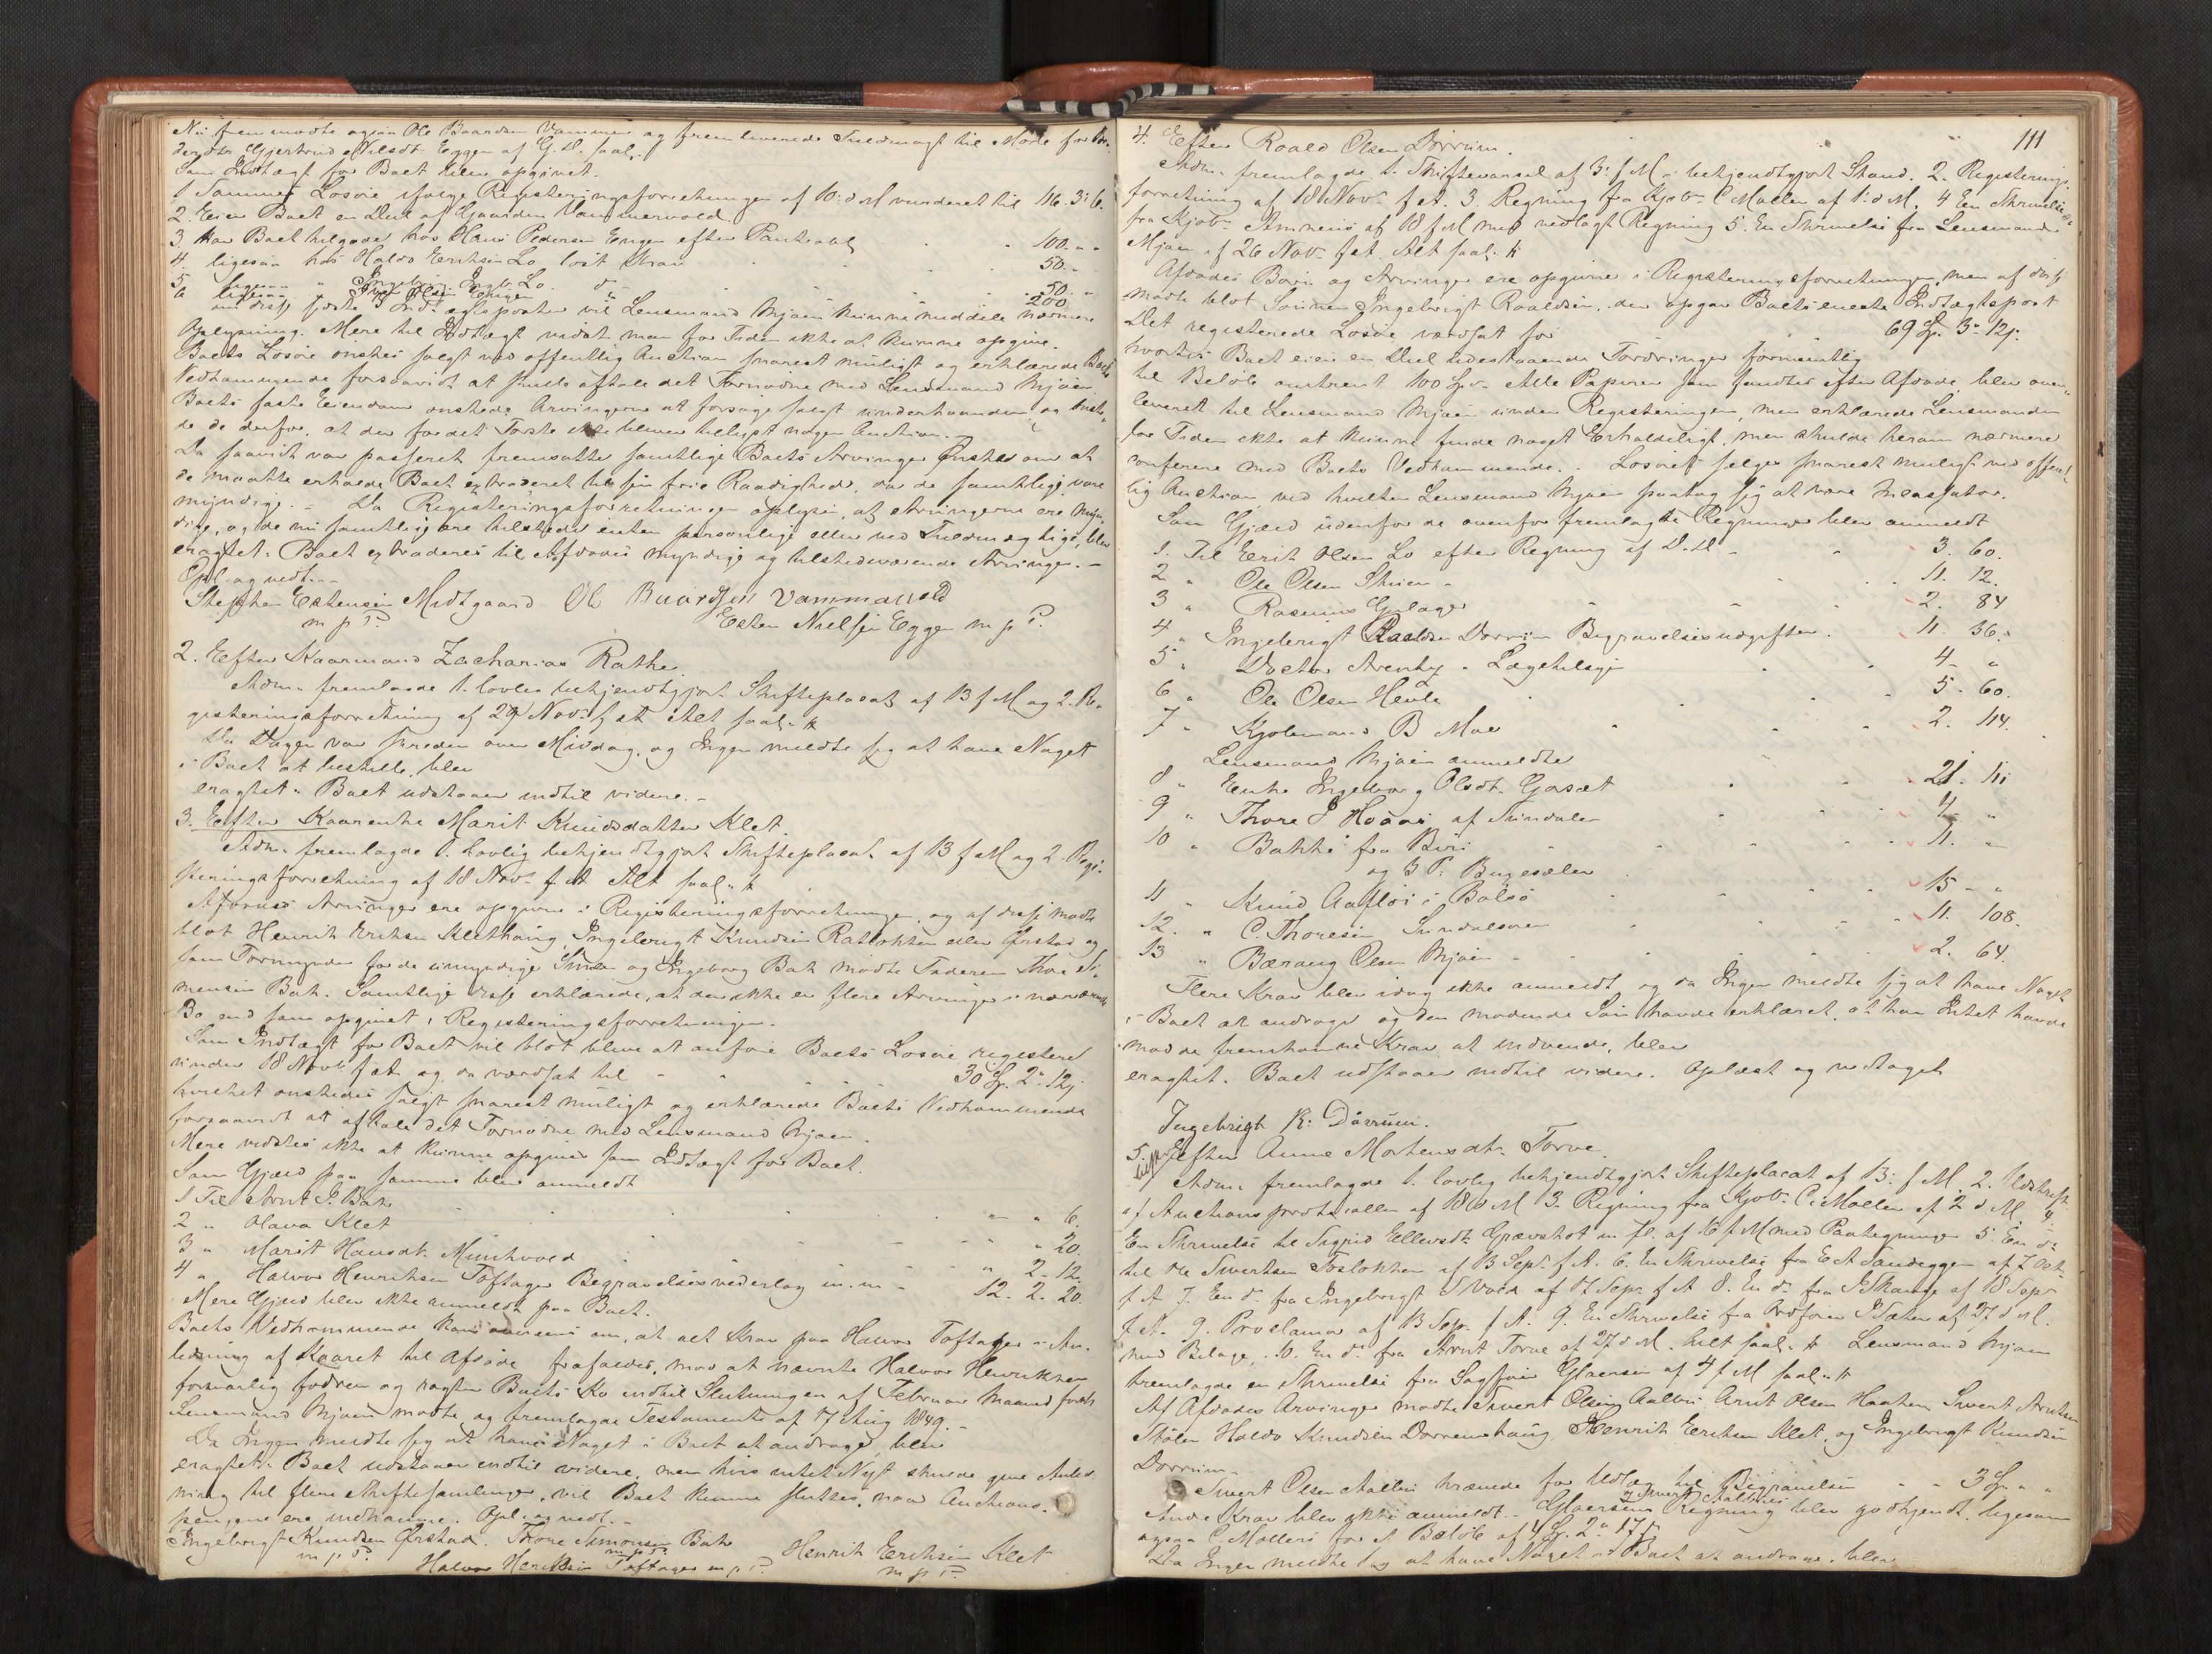 Nu fremmødte ogsaa Ole Baardsen Vammer og fremleverede Fuldmagt til Møde for
Gjertrud Nilsdt. Eggen af G. D. saal.
Som Indtægt for Boet blev opgivet.
1 Sammes Løsøre ifølge Registeringsforretningen af 10 d M vurderet til 116. 3. 6.
2. Eier Boet en Deel af Gaarden Vammervold
3. har Boet tilgode hos Hans Pedersen Engen efter Panteobl. 100. " "
4. ligesaa hos Haldo Erichsen Lo løst Krav 50. "
5. ligesaa " Ingebrigt Lo do 50. "
6 ligesaa " Iver Olsen Engen " 200
om disse sidste 3 Indtægtsposter vil Lensmand Mjøen kunne meddele nærmere
Oplysning. Mere til Indtægt vidste man for Tiden ikke at kunne opgive.
Boets Løsøre ønskes solgt ved offentlig Auction snarest muligt og erklærede Boets
Vedkommende forsaavidt at skulle aftale det Fornødne med Lensmand Mjøen
Boets faste Eiendom ønskede Arvingerne at forsøge solgt underhaanden og ønske-
de de derfor, at der for det Første ikke bliver belyst nogen Auction.
Da saavidt var passeret fremsatte samtlige Boets Arvinger Ønsket om at
de maatte erholde Boet extraderet til sin frie Raadighed, da de samtlige vare
myndige. - Da Registeringsforretningen oplyser, at Arvingerne ere myn-
dige, og de nu samtlige ere tilstede enten personlige eller ved Fuldmægtige, blev
eragtet: Boet extraderes til Afdødes myndige og tilstedeværende Arvinger. -
Opl. og vedt. -
Stephen Estensen Midtgaard Ole Baardsen Vammervold
m p P. Esten Nielsen Eggen m p P.
2. Efter Kaarmand Zacharias Rathe
Adm. fremlagde 1. lovlig bekjendtgjort Skifteplacat af 13 f M og 2. Re-
gisteringsforretning af 29 Nov. f A. Alt saal.
Da Dagen var skreden over Middag, og Ingen meldte sig at have Noget
i Boet at bestille, blev
eragtet: Boet udstaaer indtil videre. -
3. Efter Kaarenke Marit Knudsdatter Klet.
Adm. fremlagde 1. lovlig bekjendtgjort Skifteplacat af 13 f M og 2. Regi-
steringsforretning af 18 Nov. f A. Alt saal.
Afdødes Arvinger ere opgivne i Registeringsforretningen, og af disse mødte
blot Henrik Erichsen Klethaug, Ingebrigt Knudsen Ratlokken eller Ørstad og
som Formynder for de umyndige Simen og Ingeborg Bak mødte Faderen Thore Si-
mensen Bak. Samtlige disse erklærede, at der ikke er flere Arvinger i nærværende
Bo end som opgivet i Registeringsforretningen.
Som Indtægt for Boet vil blot blive at anføre Boets Løsøre registeret
under 18 Nov. f A. og da værdsat til 30 Sp. 2. 12 s
hvilket ønskedes solgt snarest muligt og erklærede Boets Vedkommende
forsaavidt at aftale det Fornødne med Lensmand Mjøen.
Mere vidstes ikke at kunne opgives som Indtægt for Boet.
Som Gjæld paa samme blev anmeldt
1 Til Arnt P. Bak " " 6.
2 " Olava Klet " " 20.
3 " Marit Hansdt. Munkvold " 2. 12.
4 " Halvor Henrichsen Toftager Begravelsesvederlag m. m. 12. 2. 20.
Mere Gjæld blev ikke anmeldt paa Boet.
Boets Vedkommende kom overens om, at alt Krav paa Halvor Toftager i An-
ledning af Kaaret til Afdøde frafaldes, mod at nævnte Halvor Henrichsen
forsvarlig fodrer og røgter Boets Ko indtil Slutningen af Februar Maaned førstk.
Lensmand Mjøen mødte og fremlagde Testamente af 7 Aug 1849. -
Da Ingen meldte sig at have Noget i Boet at andrage, blev
eragtet: Boet udstaaer indtil videre, men hvis intet Nyt skulde give Anled-
ning til flere Skiftesamlinger, vil Boet kunne sluttes, naar Auctions-
pengene ere indkomne. Opl. og vedt. -
Ingebrigt Knudsen Ørstad. Thore Simonsen Bak Henrik Erichsen Klet
m p P. m p P. m p P.
Halvor Henrikson Toftager m p P.
111
4. Efter Roald Olsen Dørrum.
Adm. fremlagde 1. Skiftevarsel af 3 f M i bekjendtgjort Stand. 2. Registerings-
forretning af 18 Nov. f A. 3. Regning fra Kjøb. C Møller af 1 d M. 4 En Skrivelse
fra Kjøb. af 18 f M med vedlagt Regning 5. En Skrivelse fra Lensmand
Mjøen af 26 Nov. f A. Alt saal.
Afdødes Børn og Arvinger ere opgivne i Registeringsforretningen, men af disse
mødte blot Sønnen Ingebrigt Roaldsen, der opgav Boets eneste Indtægtspost
Det registerede Løsøre værdsat for 69 Sp. 3. 12 s.
hvorhos Boet eier en Deel udestaaende Fordringer formentlig
til Beløb omtrent 100 Spd. Alle Papirer som fandtes efter Afdøde, blev over-
leveret til Lensmand Mjøen under Registeringen, men erklærede Lensmanden
for Tiden ikke at kunne finde noget Erholdeligt, men skulde herom nærmere
conferere med Boets Vedkommende. - Løsøret sælges snarest muligt ved offent-
lig Auction, ved hvilken Lensmand Mjøen paatog sig at være Incassator.
Som Gjæld udenfor de ovenfor fremlagte Regninger blev anmeldt
1. Til Erik Olsen Lo efter Regning af D. D. 3. 60.
2 " Ole Olsen Skuen 11. 12.
3 " Rasmus Gulager 2. 84
4 " Ingebrigt Roaldsen Dørrum Begravelsesudgifter 11. 36.
5 " Doctor Arentz - Lægetilsyn 4 - "
6 " Ole Olsen Hevle 5. 60.
7 " Kjøbmand B Moe 2. 114.
Lensmand Mjøen anmeldte
8 " Enke Ingeborg Olsdt. Gorset 21. 111
9 " Thore J Hoaas af Sundalen 4. "
10 " Bakke fra Biri 11. "
og 3 P. Bugeseler
11 " Knud Aafløi i Bolsø 15 - "
12. " C. Thoresen Sundalsøren 11. 108.
13 " Bæraug Olsen Mjøen 2. 64.
Flere Krav blev idag ikke anmeldt og da Ingen meldte sig at have Noget
i Boet at andrage og den mødende Søn havde erklæret, at han Intet havde
mod de fremkomne Krav at indvende, blev
eragtet: Boet udstaaer indtil videre. Oplæst og vedtaget
Ingebrigt R: Dørrum.
5. Efter Anne Mortensdt. Torve.
Adm. fremlagde 1. lovlig bekjendtgjort Skifteplacat af 13 f M. 2. Udskrift
af Auctionsprotocollen af 18 d M 3. Regning fra Kjøb. C. Møller af 2 d M. 4.
En Skrivelse til Sigrid Ellevsdt. Grævskot m. fl. af 16 f M med Paategninger 5. En do
til Ole Sivertsen Foslokken af 13 Sept. f A. 6. En Skrivelse fra E A Sandeggen af 7 Oct.
f A 7. En do fra Ingebrigt Voes af 17 Sept. f A 8. En do fra J Skauge af 18 Sept
f A. 9. Proclama af 13 Sep. f A. 9. En Skrivelse fra Ordfører J Sæter af 27 d M.
med Bilage, 10. En do fra Arnt Torve af 27 d M. Alt saal. Lensmand Mjøen
fremlagde en Skrivelse fra Sagfører Glaersen af 4 f M saal.
Af Afdødes Arvinger mødte Sivert Olsen Aalbu, Arnt Olsen Haaker, Sivert Arntsen
Stølen Haldo Knudsen Dørremshaug, Henrik Erichsen Klet, og Ingebrigt Knudsen
Dørrum. -
Sivert Olsen Aalbu krævede for Udlæg til Begravelsen 3 Sp. " "
Andre Krav blev ikke anmeldt. - Glaersens og Sivert Aalbues Regning blev godkjendt, ligesom
ogsaa C. Møllers for et Beløb af 4 Sp. 2. 17 s.
Da Ingen meldte sig at have Noget i Boet at andrage, blev